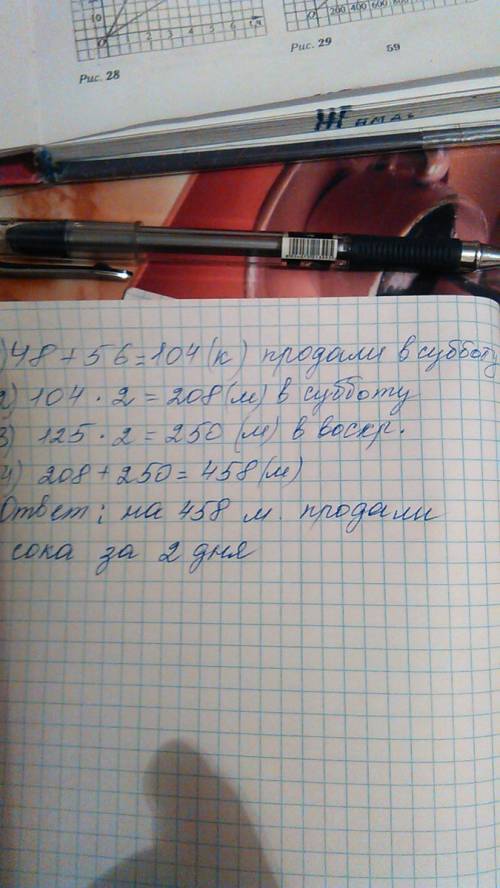 10
0
1 2 3 4 5 6
0
200 400 600 800
Рис. 28
Рис. 29
59
) 48 + 56 = 104 (к) продали в субботу
2) 104 · 2 = 208 (м) в субботу
3) 125 · 2 = 250 (м) в воскр.
4) 208 + 250 = 458 (м)
Ответ: на 458 м. продали
сока за 2 дня